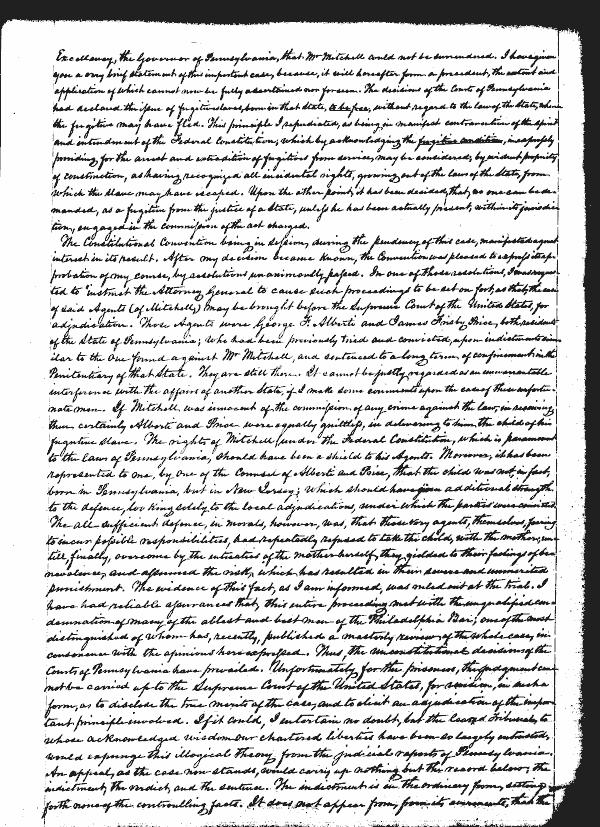 Excellency, the Governor of Pennsylvania, that Mr Mitchell could not be surrendered. I have given
you a very brief statement of this important case, because, it will hereafter form a precedent, the extent and
application of which cannot now be fully ascertained nor foreseen. The decisions of the Courts of Pennsylvania
had declared the issue of fugitive slaves, born in that State, to be free, without regard to the law of the State, whence
the fugitive may have fled. This principle I repudiated, as being in manifest contravention of the spirit
and intendment of the Federal Constitution, which by acknowledging the fugitive condition, in expressly
providing for the arrest and extradition of fugitives from service, may be considered, by evident propriety
of construction, as having recognized all incidental rights, growing out of the laws of the State, from
which the slave may have escaped. Upon the other point, it has been decided, that, no one can be de-
manded, as a fugitive from the justice of a State, unless he has been actually present, within its jurisdic-
tion, engaged in the commission of the act charged.
The Constitutional Convention being in session, during the pendency of this case, manifested a great
interest in its result. After my decision became known, the Convention was pleased to express its ap-
probation of my course, by resolutions unanimously passed. In one of those resolutions, I was reques-
ted to "instruct the Attorney General to cause such proceedings to be set on foot, as that, the case
of said Agents (of Mitchell) may be brought before the Supreme Court of the United States, for
adjudication. Those Agents were George F. Alberti and James Frisby Price, both residents
of the State of Pennsylvania; who had been previously tried and convicted, upon indictments sim-
ilar to the one found against Mr Mitchell, and sentenced to a long term, of confinement, in the
Penitentiary of that State. They are still there. It cannot be justly regarded as an unwarrantable
interference with the affairs of another State, if I make some comments upon the case of these unfortu-
nate men. If Mitchell, was innocent of the commission of any crime against the law, in receiving
them, certainly Alberti and Price were equally guiltless, in delivering to him the child of his
fugitive slave. The rights of Mitchell, under the Federal Constitution, which is paramount
to the laws of Pennsylvania, should have been a shield to his Agents. Moreover, it has been
represented to me, by one of the Counsel of Alberti and Price, that the child was not, in fact,
born in Pennsylvania, but in New Jersey; which should have given additional strength
to the defence, looking solely to the local adjudications, under which the parties were convicted.
The all-sufficient defence, in morals, however, was, that those very agents, themselves, fearing
to incur possible responsibilities, had repeatedly refused to take the child, with the mother, un-
till, finally, overcome by the intreaties of the mother herself, they yielded to their feelings of be-
nevolence, and assumed the risk, which has resulted in their severe and unmerited
punishment. The evidence of this fact, as I am informed, was ruled out at the trial. I
have had reliable assurances that, this entire proceeding met with the unqualified con-
demnation of many of the ablest and best men of the Philadelphia Bar; one of the most
distinguished of whom has, recently, published a masterly review, of the whole case, in
consonance with the opinions here expressed. Thus, the unconstitutional decisions of the
Courts of Pennsylvania have prevailed. Unfortunately, for the prisoners, the judgment can-
not be carried up to the Supreme Court of the United States, for revision, in such a
form, as to disclose the true merits of the case, and to elicit an adjudication of the impor-
tant principle involved. If it could, I entertain no doubt, but the tribunal, to
whose acknowledged wisdom our chartered liberties have been so largely intrusted,
would expunge this illogical theory from the judicial reports of Pennsylvania.
An appeal, as the case now stands, would carry up nothing but the record below; the
indictment, the verdict, and the sentence. The indictment is in the ordinary form, setting
forth none of the controlling facts. It does not appear from, from its averments, that the